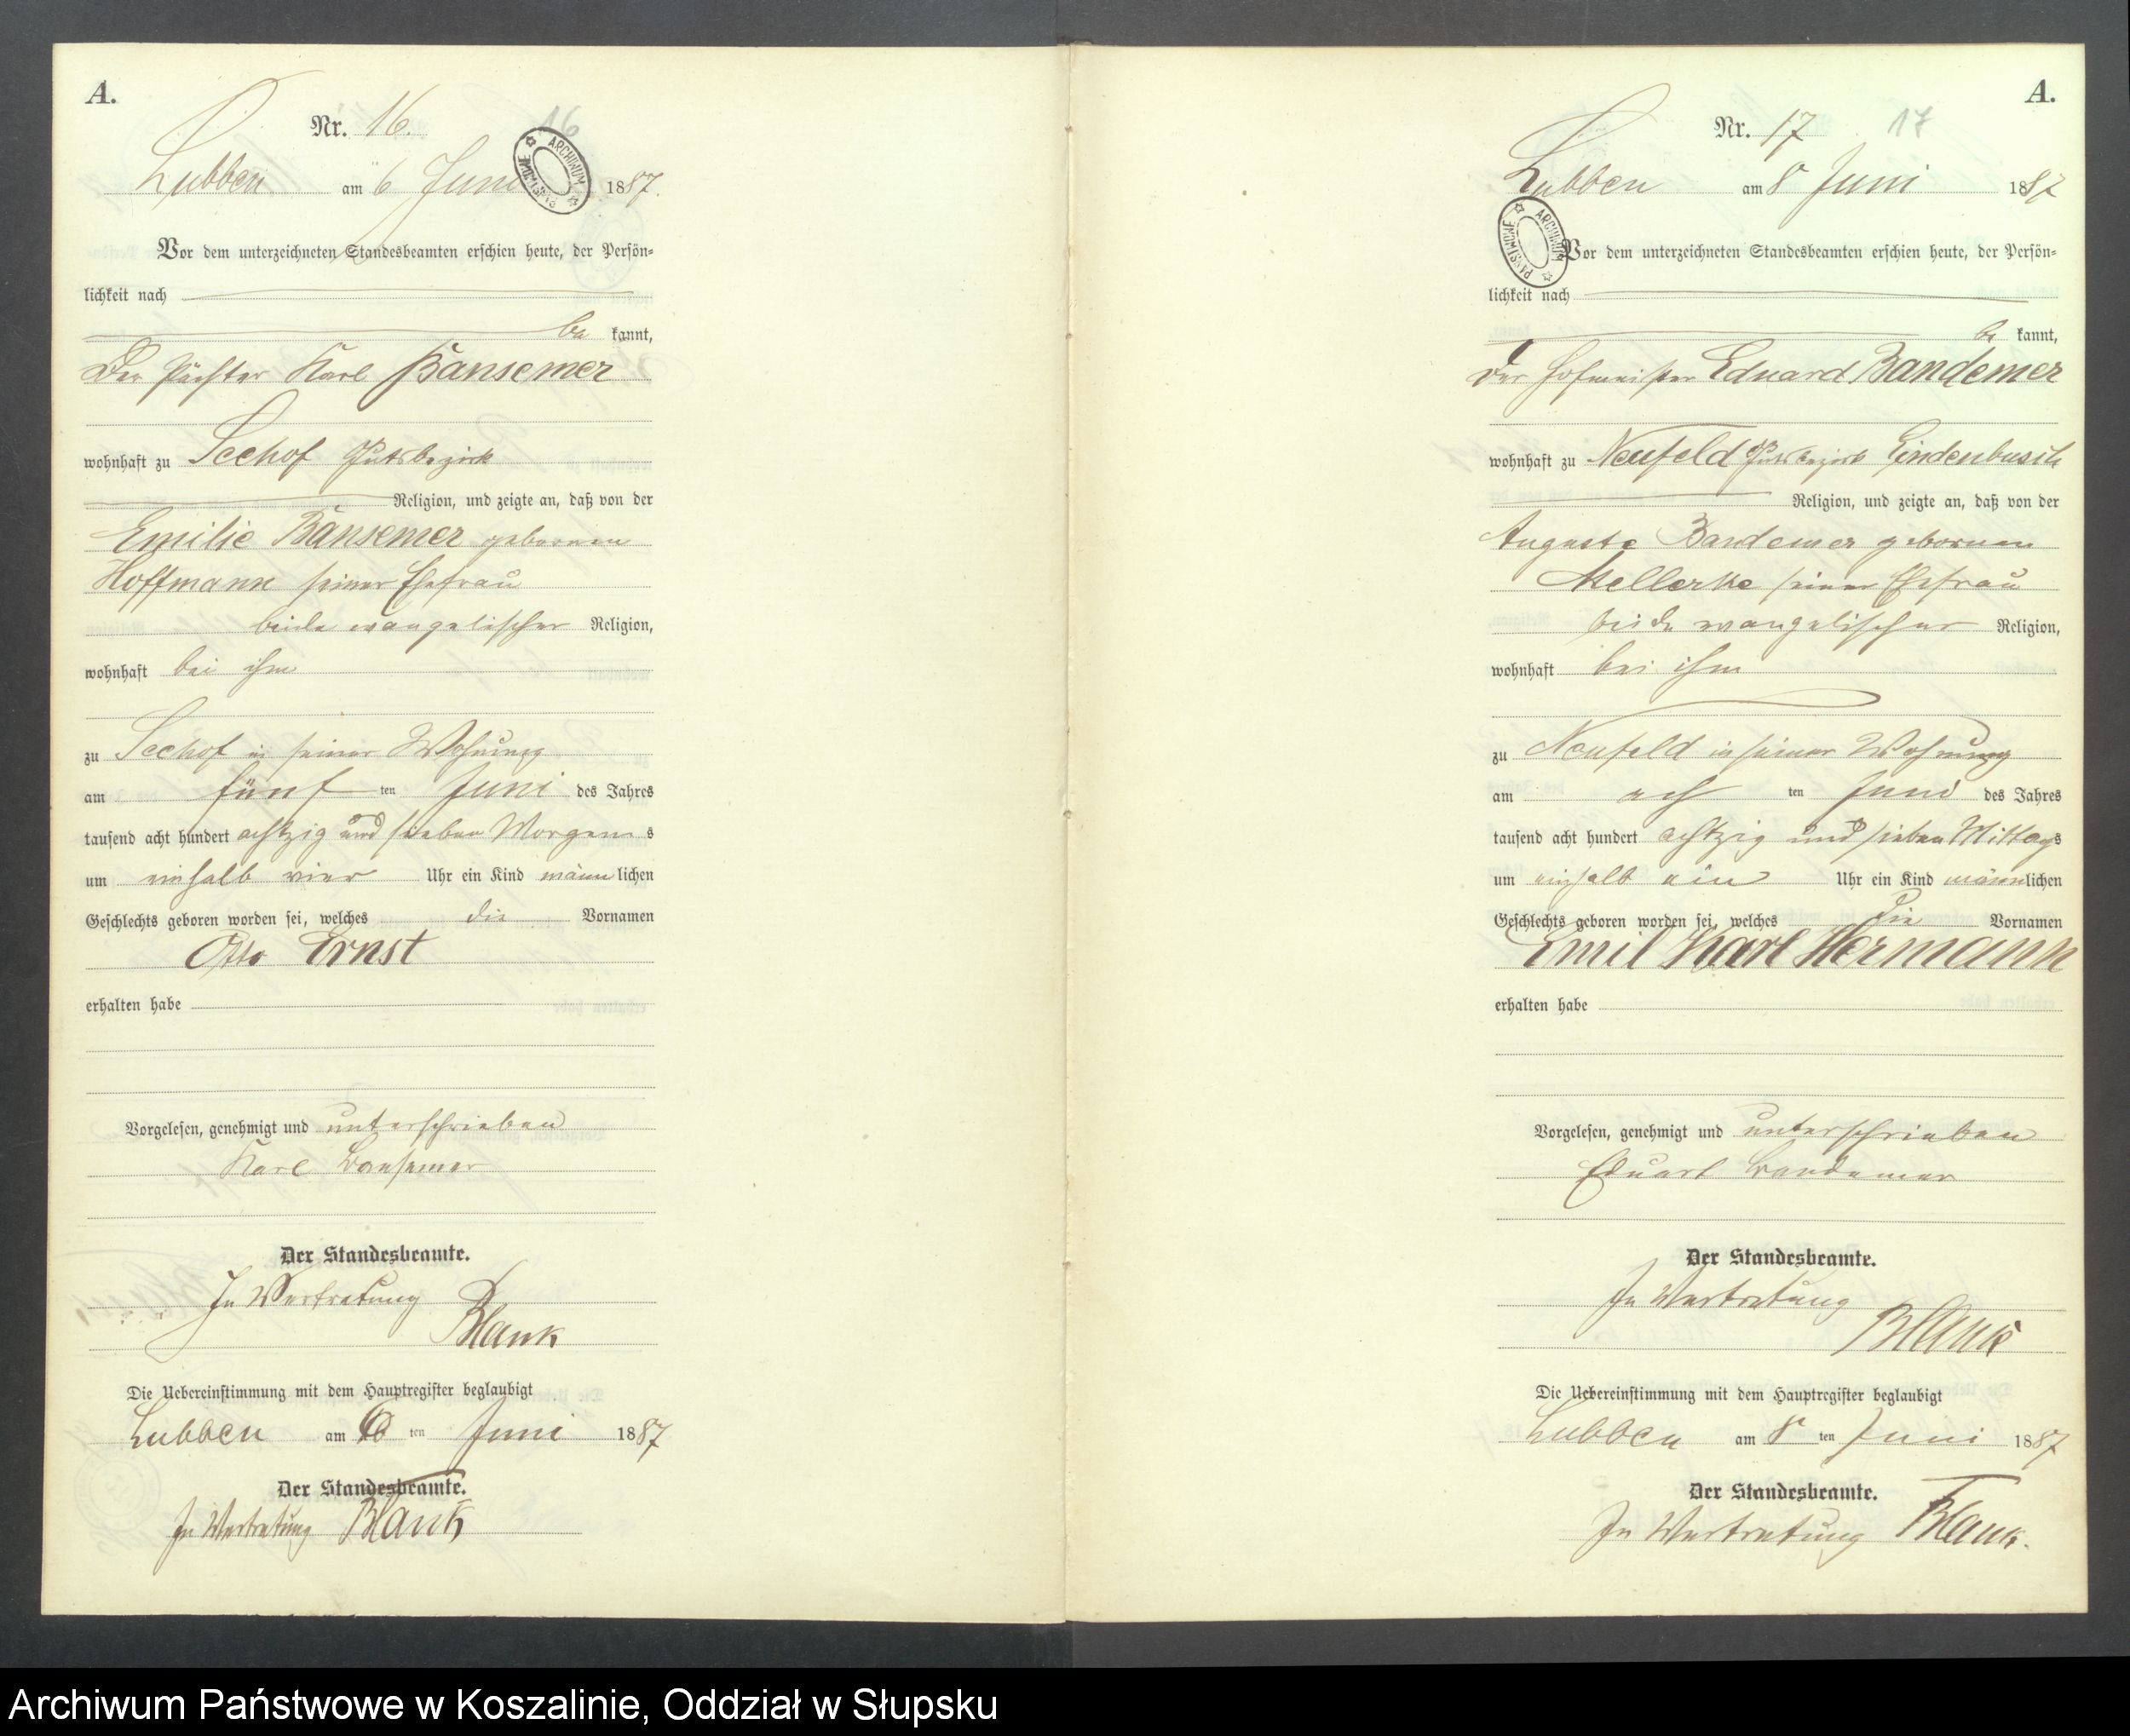 A.
Nr. 16.
16
ARCHIWUM PAŃSTWOWE
Lubben am 6 Juni 1887.
Vor dem unterzeichneten Standesbeamten erschien heute, der Persön-
lichkeit nach
be kannt,
Der Pächter Karl Bansemer
wohnhaft zu Seehof Gutsbezirk
Religion, und zeigte an, daß von der
Emilie Bansemer gebornen
Hoffmann seiner Ehefrau
beide evangelischer Religion,
wohnhaft bei ihm
zu Seehof in seiner Wohnung
am fünf ten Juni des Jahres
tausend acht hundert achtzig und sieben Morgens
um einhalb vier Uhr ein Kind männlichen
Geschlechts geboren worden sei, welches die Vornamen
Otto Ernst
erhalten habe
Vorgelesen, genehmigt und unterschrieben
Karl Bansemer
Der Standesbeamte.
In Vertretung
Blank
Die Uebereinstimmung mit dem Hauptregister beglaubigt
Lubben am 6 ten Juni 1887
Der Standesbeamte.
In Vertretung Blank
A.
Nr. 17
17
Lubben am 8 Juni 1887
ARCHIWUM PAŃSTWOWE
Vor dem unterzeichneten Standesbeamten erschien heute, der Persön-
lichkeit nach
be kannt,
Der Hofmeister Eduard Bandemer
wohnhaft zu Neufeld Gutsbezirk Lindenbusch
Religion, und zeigte an, daß von der
Auguste Bandemer gebornen
Mellerke seiner Ehefrau
beide evangelischer Religion,
wohnhaft bei ihm
zu Neufeld in seiner Wohnung
am ach ten Juni des Jahres
tausend acht hundert achtzig und sieben Mittags
um einhalb ein Uhr ein Kind männlichen
Geschlechts geboren worden sei, welches die Vornamen
Emil Karl Hermann
erhalten habe
Vorgelesen, genehmigt und unterschrieben
Eduart Bandemer
Der Standesbeamte.
In Vertretung
Blank
Die Uebereinstimmung mit dem Hauptregister beglaubigt
Lubben am 8 ten Juni 1887
Der Standesbeamte.
In Vertretung Blank.
Archiwum Państwowe w Koszalinie, Oddział w Słupsku